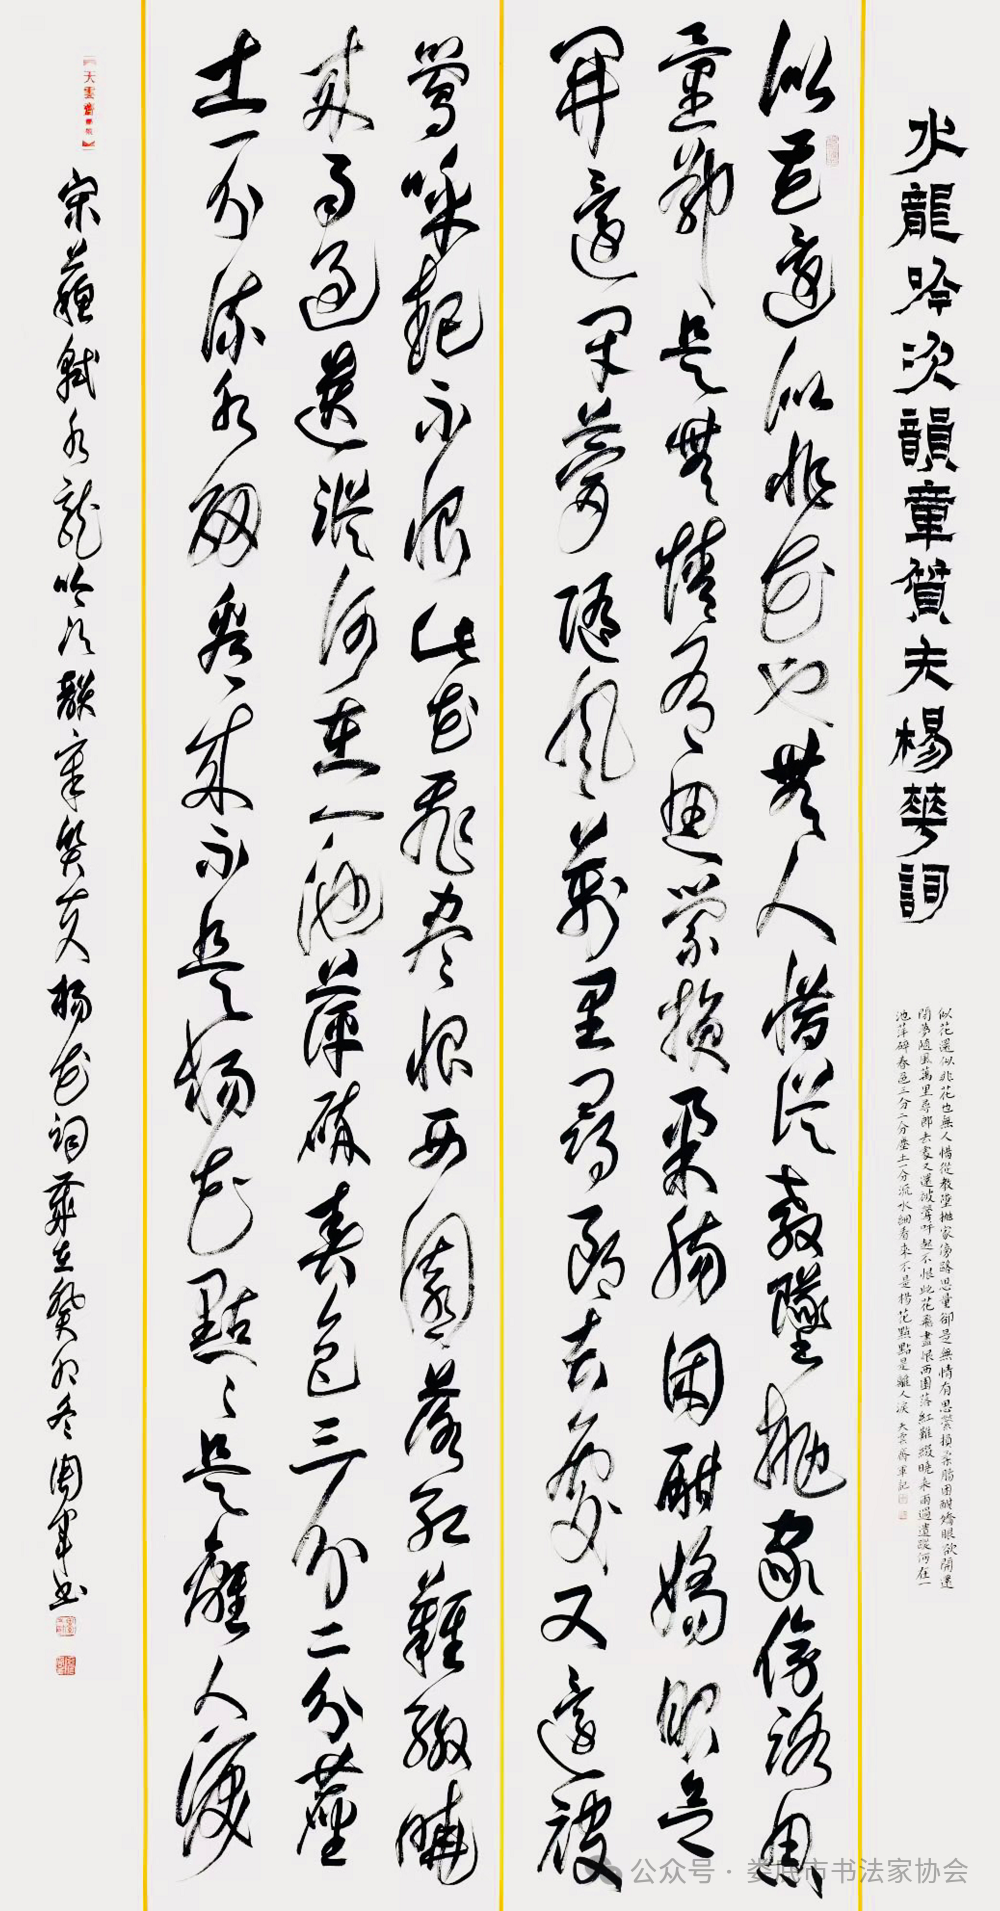 水龍吟次韻章質夫楊華詞
似花還似非花也無人惜從教墜拋家傍路思量卻是無情有思縈損柔腸困酣嬌眼欲開還
閉夢隨風萬里尋郎去處又還被鶯呼起不恨此花飛盡恨西園落紅難綴曉來雨過遺蹤何在一
池萍碎春色三分二分塵土一分流水細看來不是楊花點點是離人淚 大雲齋軍記
似花還似非花也無人惜從教墜拋家傍路思
量卻是無情有思縈損柔腸困酣嬌眼欲
開還閉夢隨風萬里尋郎去處又還被
鶯呼起不恨此花飛盡恨西園落紅難綴曉
來雨過遺蹤何在一池萍碎春色三分二分塵
土一分流水細看來不是楊花點々是離人淚
宋蘇軾水龍吟次韻章質夫楊花詞歲在癸卯冬周軍書
公众号·娄底市书法家协会